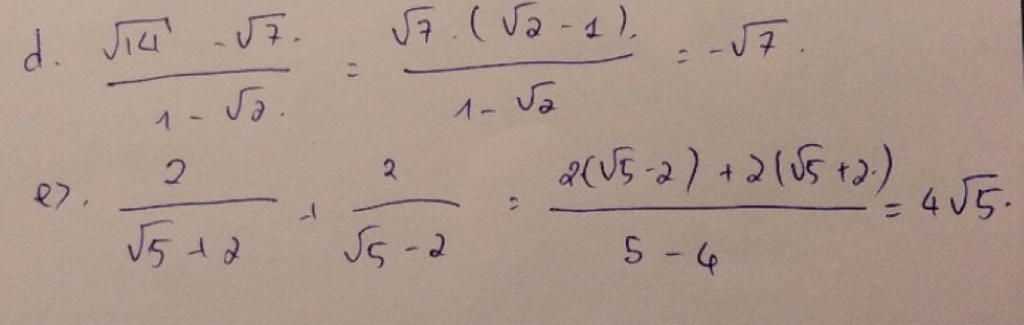 d. (√14 - √7.)/(1 - √2.) = (√7 . (√2 - 1).)/(1 - √2) = -√7.
e). 2/(√5 + 2) + 2/(√5 - 2) = (2(√5 - 2) + 2(√5 + 2.))/(5 - 4) = 4√5.